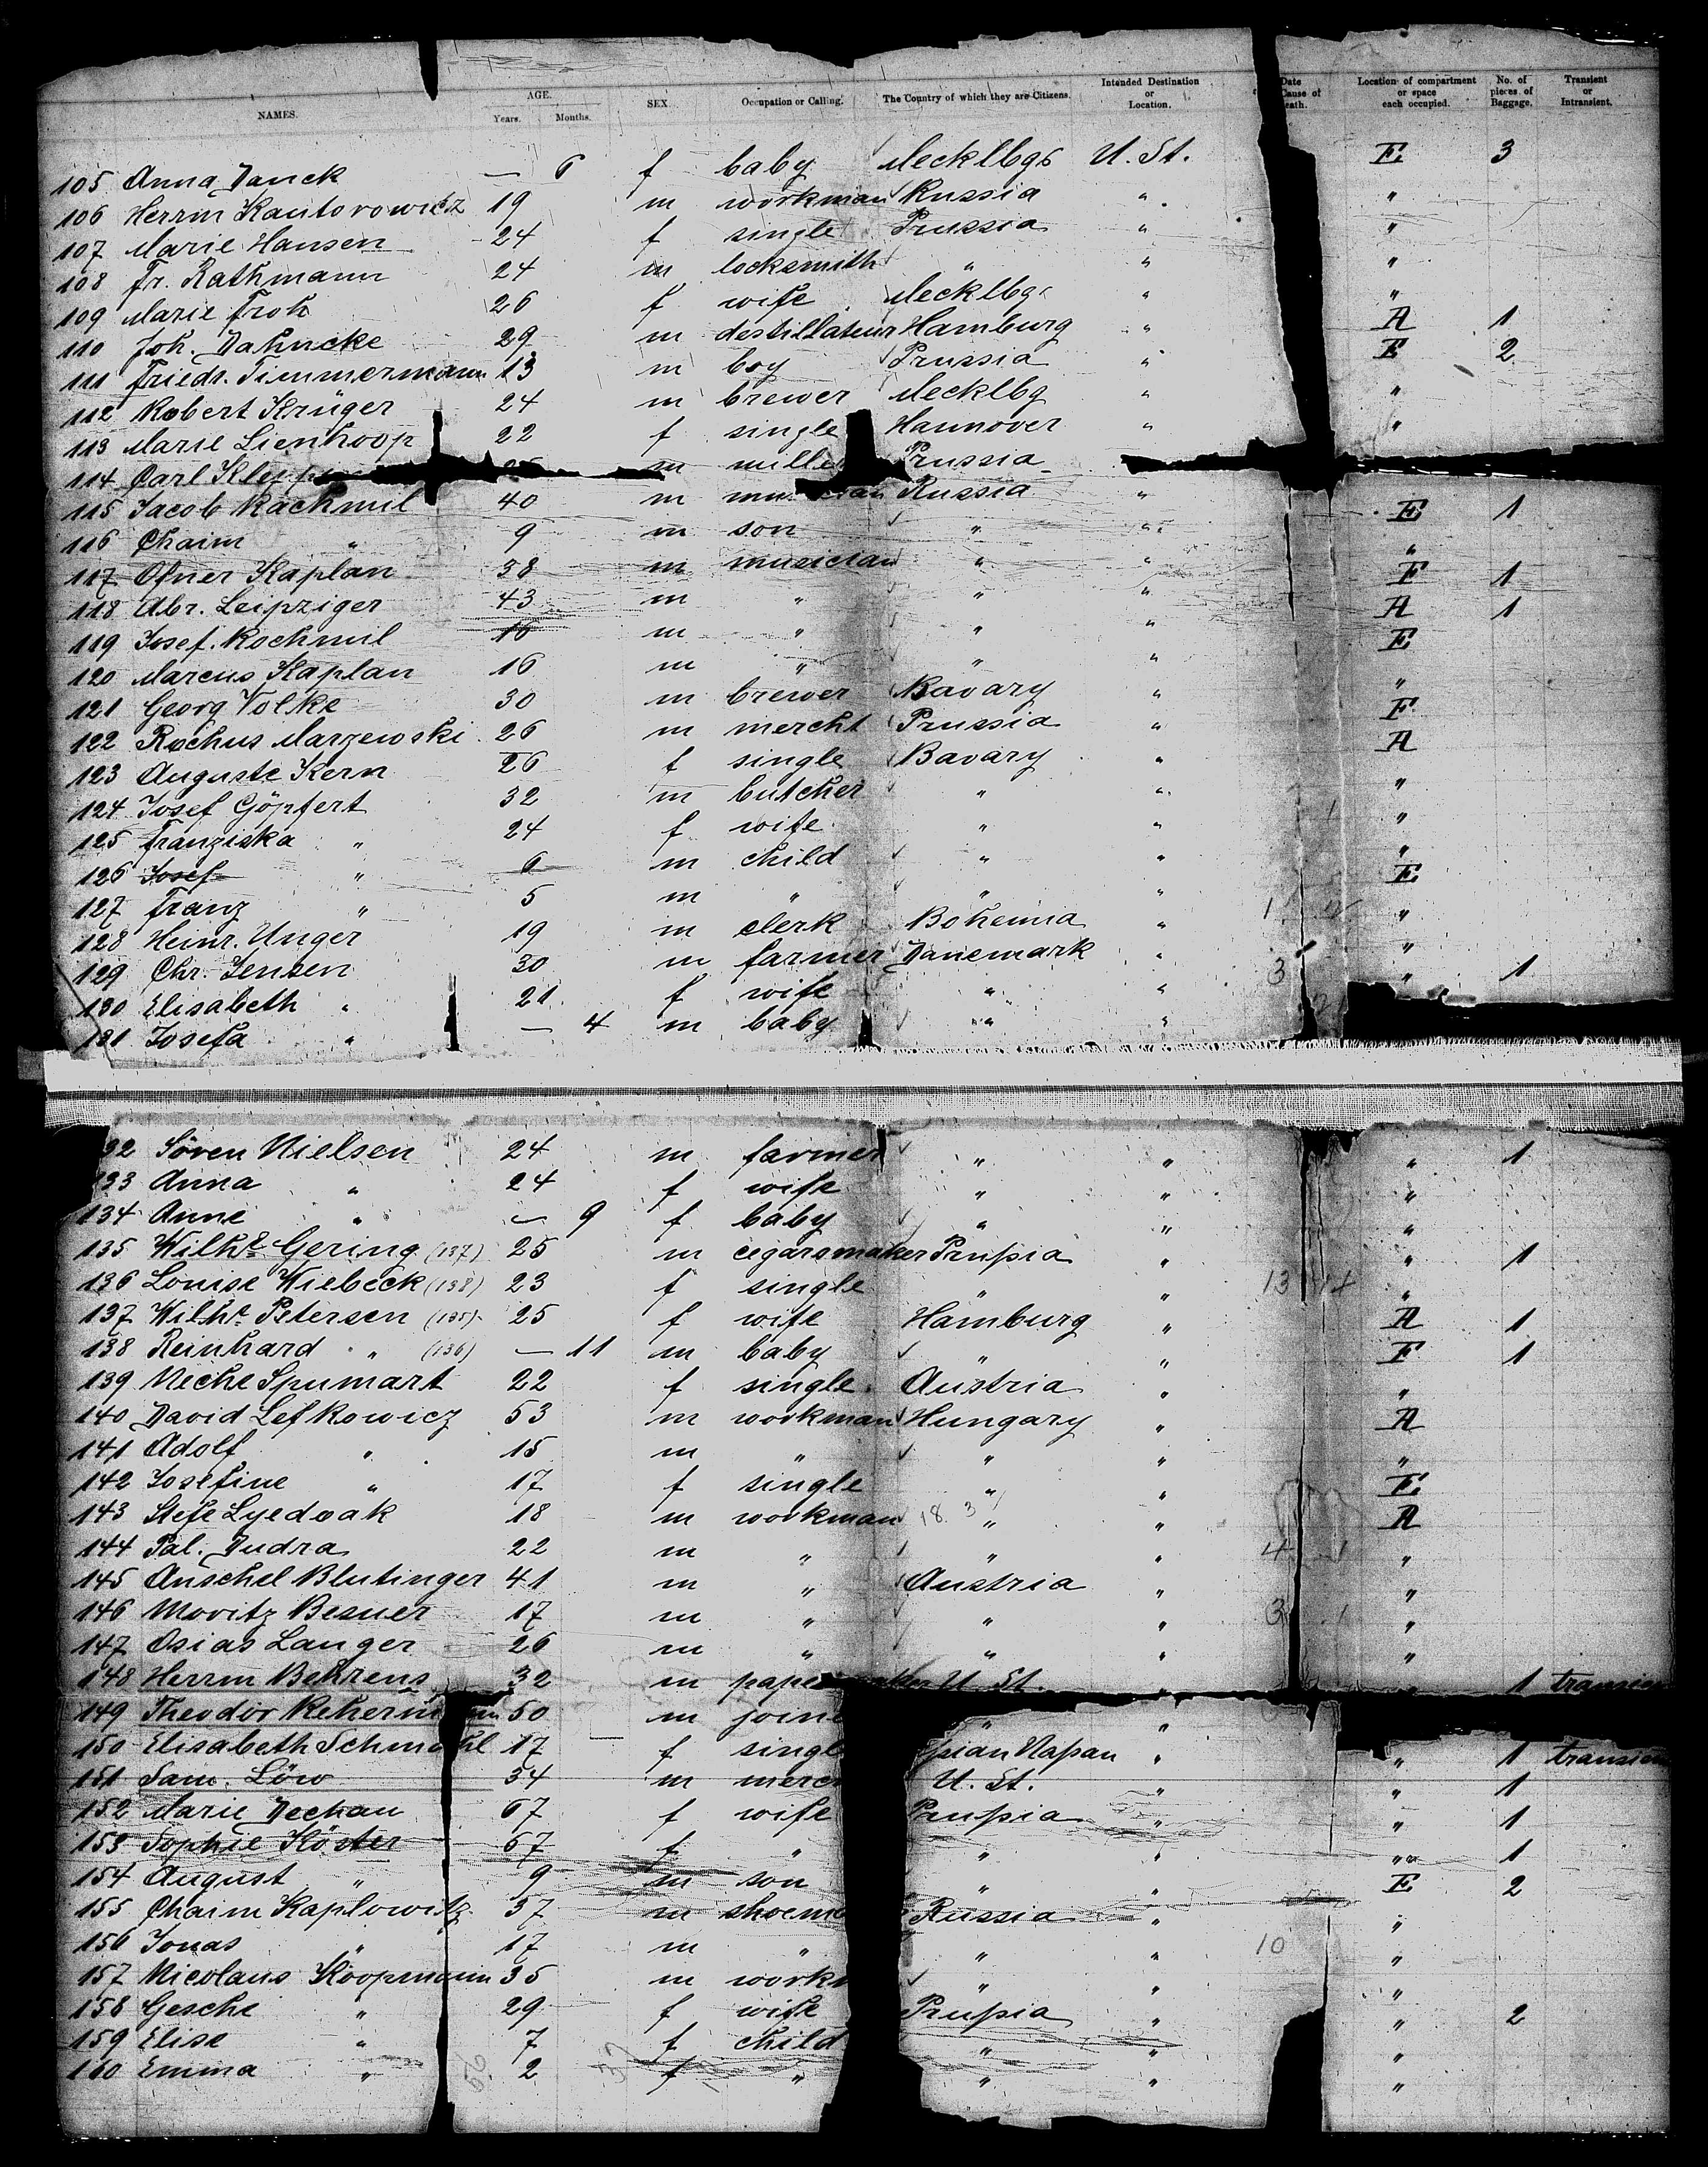 NAMES. AGE. Years. Months. SEX. Occupation or Calling. The Country of which they are Citizens. Intended Destination or Location. Date Cause of eath. Location of compartment or space each occupied. No. of pieces of Baggage. Transient or Intransient.
105 Anna Danck — 6 f baby Mecklbgs U. St. E 3
106 Herrm Kantorowicz 19 m workman Russia " "
107 Marie Hansen 24 f single Prussia " "
108 Fr. Rathmann 24 m locksmith " " "
109 Marie Froh 26 f wife Mecklbgs " "
110 Joh. Dahncke 29 m destillateur Hamburg " A 1
111 Friedr. Timmermann 13 m boy Prussia " E 2
112 Robert Krüger 24 m brewer Mecklbg " "
113 Marie Lienhoop 22 f single Hannover " "
114 Carl Klepp m mille Prussia
115 Jacob Rachmil 40 m mu cian Russia " E 1
116 Chaim " 9 m son " " "
117 Ofner Kaplan 38 m musician " " F 1
118 Abr. Leipziger 43 m " " " A 1
119 Josef Rochmil 16 m " " " E
120 Marcus Kaplan 16 m " " " "
121 Georg Volke 30 m brewer Bavary " F
122 Rochus Marzewski 26 m mercht Prussia " A
123 Auguste Kern 26 f single Bavary " "
124 Josef Göpfert 32 m butcher " " "
125 Franziska " 24 f wife " " "
126 Josef " 6 m child " " E
127 Franz " 5 m " " " "
128 Heinr. Unger 19 m clerk Bohemia " "
129 Chr. Jensen 30 m farmer Danemark " " 1
130 Elisabeth " 21 f wife " "
131 Josefa " — 4 m baby " "
32 Sören Nielsen 24 m farmer " " " 1
133 Anna " 24 f wife " " "
134 Anne " — 9 f baby " " "
135 Wilhe Gering (137) 25 m cegarsmaker Prussia " " 1
136 Louise Wiebeck (138) 23 f single " " " 13 14
137 Wilhe Petersen (135) 25 f wife Hamburg " A 1
138 Reinhard " (136) — 11 m baby " " F 1
139 Neche Spumart 22 f single Austria " "
140 David Lefkowicz 53 m workman Hungary " A
141 Adolf " 15 m " " " "
142 Josefine " 17 f single " " E
143 Stefe Lyedoak 18 m workman " " A
144 Pal. Dudra 22 m " " " "
145 Anschel Blutinger 41 m " Austria " "
146 Moritz Besner 17 m " " " "
147 Osias Langer 26 m " " " "
148 Herrm Behrens 32 m pape ker U. St. " " 1 transien
149 Theodor Reherm n 50 m joine " "
150 Elisabeth Schmahl 17 f singl " " 1 transien
151 Sam. Löw 34 m merc U. St. " " 1
152 Marie Dechau 67 f wife Prussia " " 1
153 Sophie Köster 67 f " " " " 1
154 August " 9 m son " " E 2
155 Chaim Kaplowitz 37 m shoema Russia " "
156 Jonas " 17 m " " " 10 "
157 Nicolaus Koopmann 35 m workm " " "
158 Gesche " 29 f wife Prussia " " 2
159 Elise " 7 f child " " "
160 Emma " 2 f " " " "